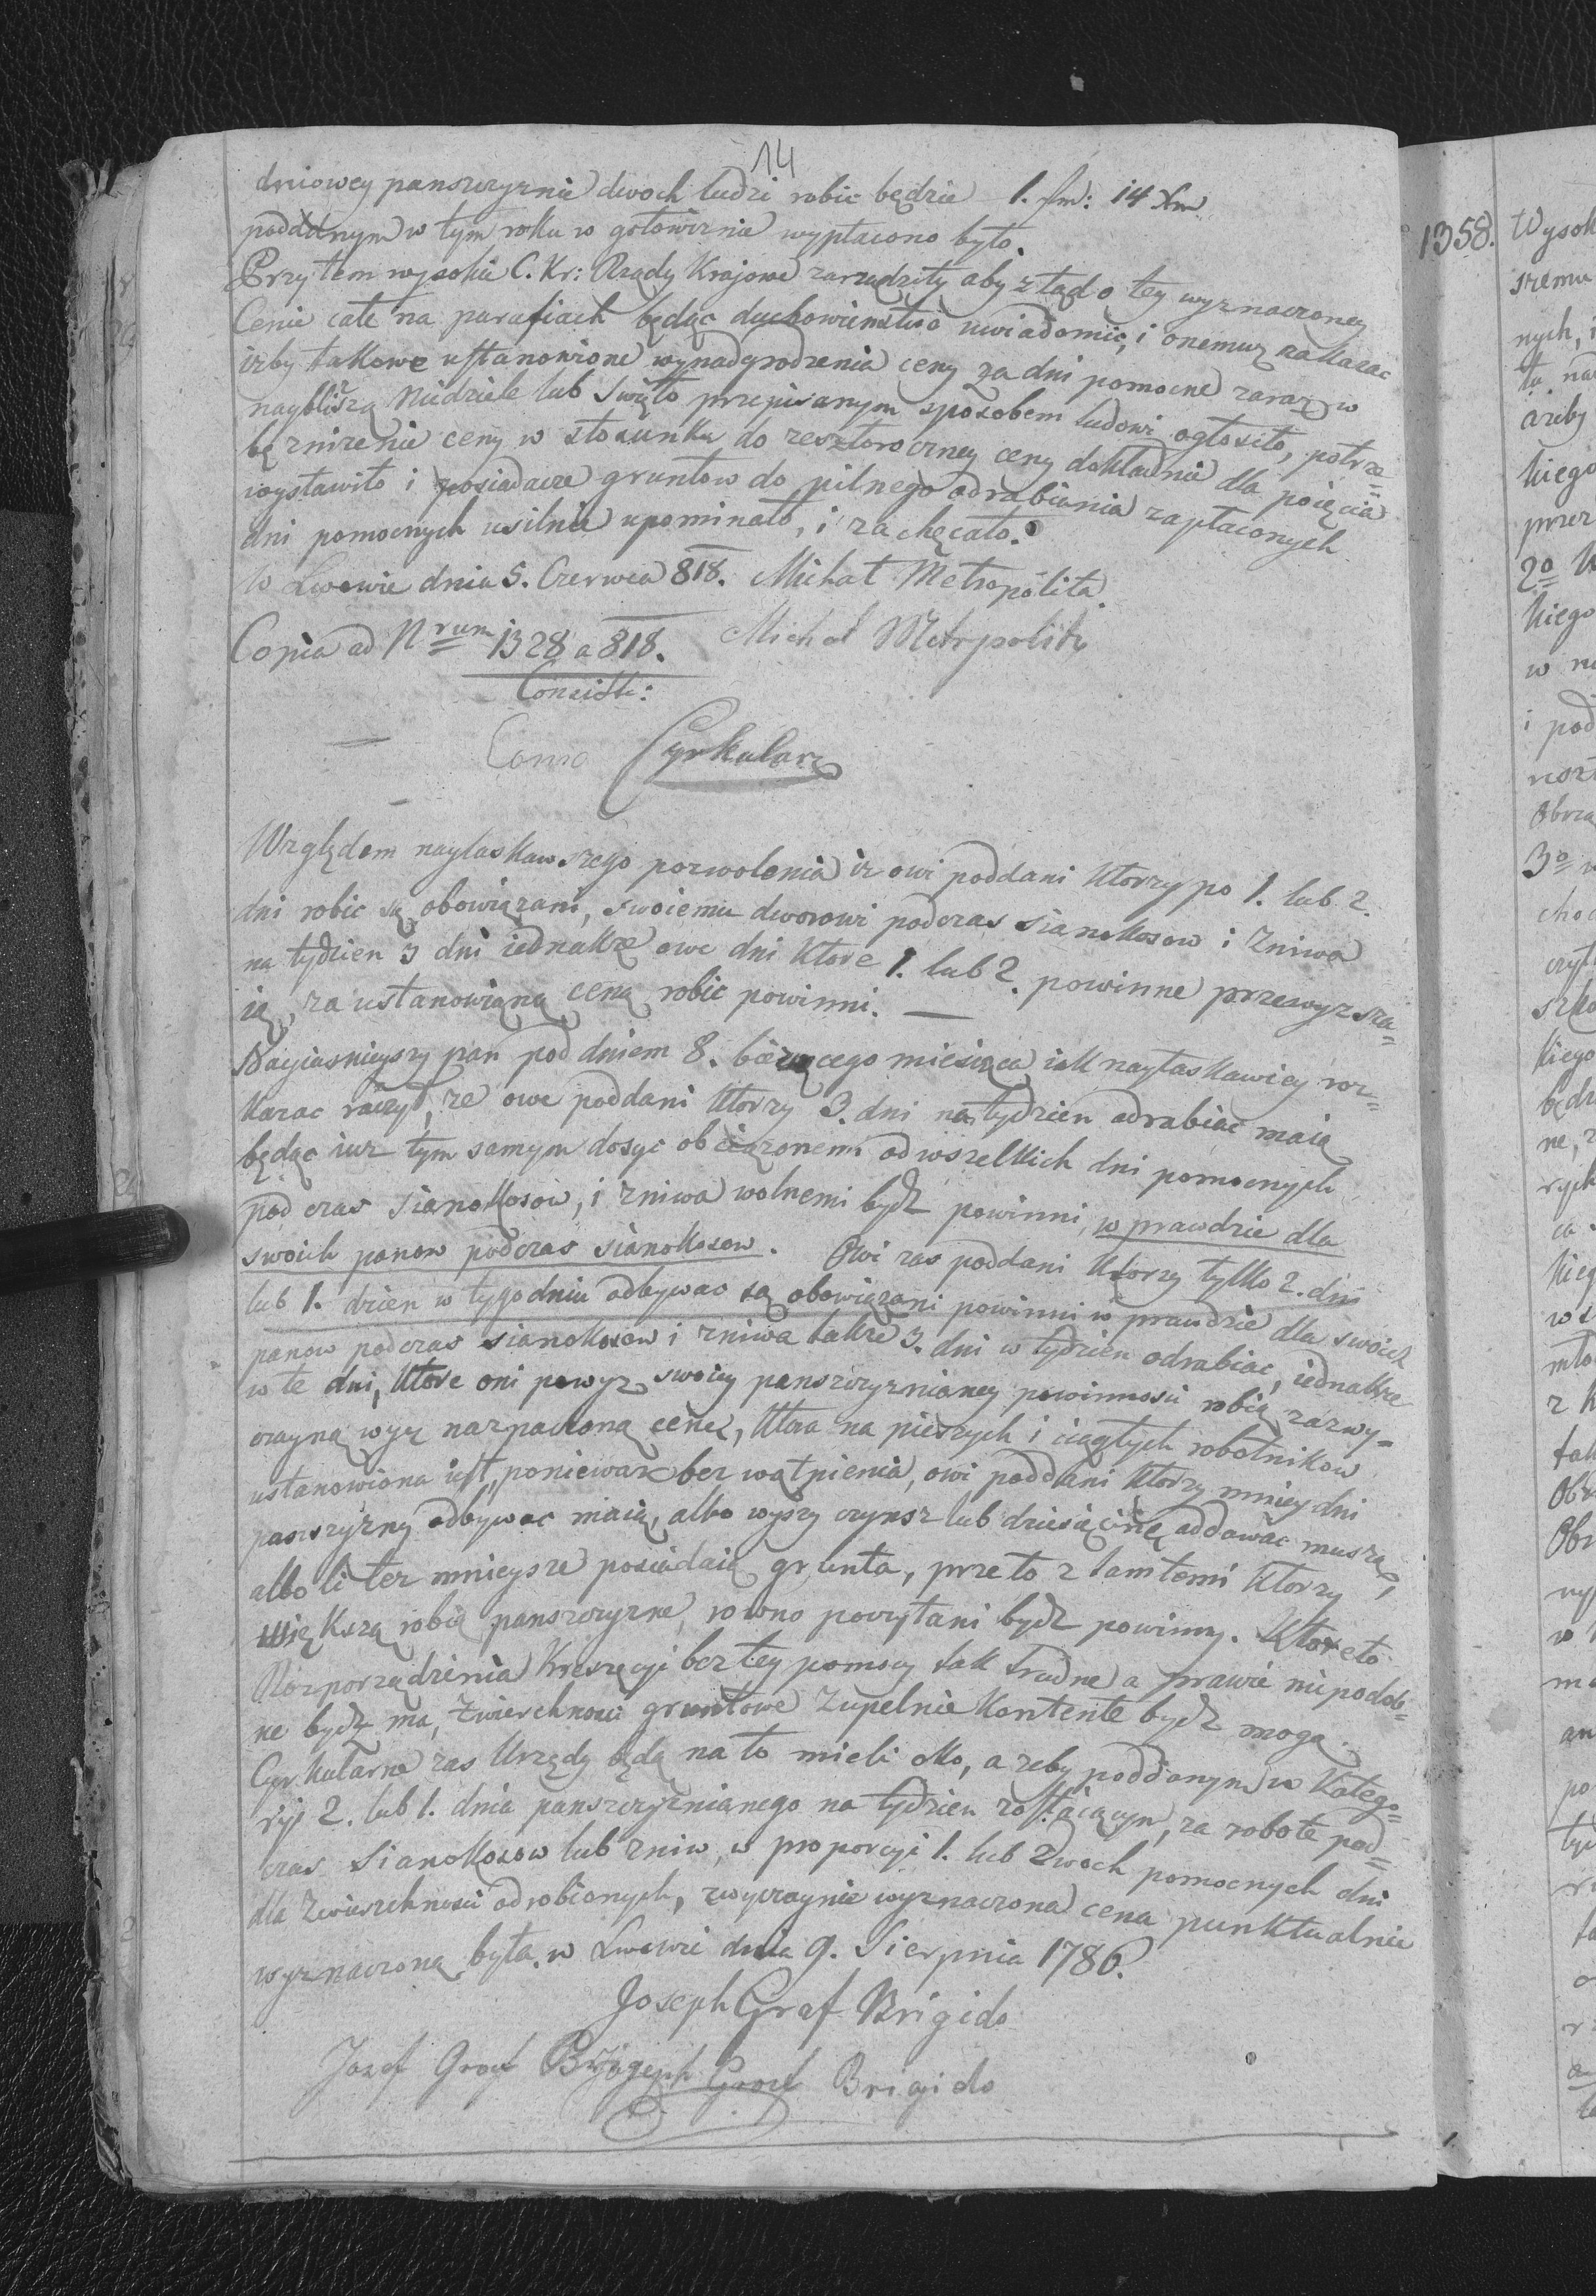 14
dniowey panszczyznie dwoch ludzi robic będzie 1. fm: 14 Xm
poddanym w tym roku w gotowiznie wypłacono było.
Przytem wysokie C. Kr: Rządy Krajowe zarządziły aby ztąd o tey wyznaczoney
Cenie całe na parafiach będąc duchowieństwo uwiadomic, i onemuz nakazac
izby takowe ustanowione wynadgrodzenia ceny za dni pomocne zaraz w
naybliższą Niedziele lub święto przepisanym sposobem ludowi ogłosiło, potrze=
bę zniżenie ceny w stosunku do zeszłoroczney ceny dokładnie dla poięcia
wystawiło i posiadacze gruntow do pilnego odrabiania zapłaconych
dni pomocnych usilnie upominało, i zachęcało.
w Lwowie dnia 5. Czerwca 818. Michał Metropolita.
Copia ad Nrum 1328 a 818. Michał Metrpolity
Consist:
Cyrkularz
Względem nayłaskawszego pozwolenia iz owi poddani ktorzy po 1. lub 2.
dni robic są obowiązani, swoiemu dworowi podczas sianokosow i zniwa
na tydzien 3 dni iednakze owe dni ktore 1. lub 2. powinne przewyzsza=
ią, za ustanowioną ceną robic powinni. —
Nayiasnieyszy pan pod dniem 8. biezącego miesiąca iak nayłaskawiey roz=
kazac raczył, ze owe poddani ktorzy 3. dni na tydzien odrabiac maią
będąc iuz tym samym dosyc obciązonemi od wszelkich dni pomocnych
pod czas sianokosow, i zniwa wolnemi bydz powinni, w prawdzie dla
swoich panow podczas sianokosow. Owi zas poddani ktorzy tylko 2. dni
lub 1. dzien w tygodniu odbywac są obowiązani powinni w prawdzie dla swoich
panow podczas sianokosow i zniwa takze 3. dni w tydzien odrabiac, iednakze
w te dni, ktore oni powyz swoiey panszczyznianey powinnosci robią zazwy-
czayną wyz naznaczoną cenę, ktora na pieszych i ciągłych robotnikow
ustanowiona iest, poniewaz bez wątpienia, owi poddani ktorzy mniey dni
panszczyzny odbywac maią, albo wyszy czynsz lub dziesięcinę oddawac muszą,
albo li tez mnieysze posiadaią grunta, przeto z tamtemi ktorzy
większą robią panszczyzne, rowno poczytani bydz powinny. Ktoreto
Rozporządzenia kreszęcyi bez tey pomocy tak trudne a prawie niepodob=
ne bydz ma, Zwierchnosci gruntowe zupelnie kontente bydz mogą.
Cyrkularne zas Urzędy będą na to mieli oko, a zeby poddanym w Katego=
ryi 2. lub 1. dnia panszczyznianego na tydzien zostaiącym, za robote pod=
czas Sianokosow lub zniw, w proporcyi 1. lub 2woch pomocnych dni
dla Zwierzchnosci odrobionych, zwyczaynie wyznaczona cena punktualnie
wyznaczona była. w Lwowie dnia 9. Sierpnia 1786.
Joseph Graf Brigido
Jozef Graf Joseph Graf Brigido
1358.